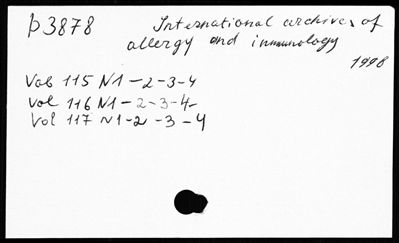 p3878 International archives of
allergy and inmunology
1998
Vol 115 N1-2-3-4
Vol 116 N1-2-3-4-
Vol 117 N1-2-3-4